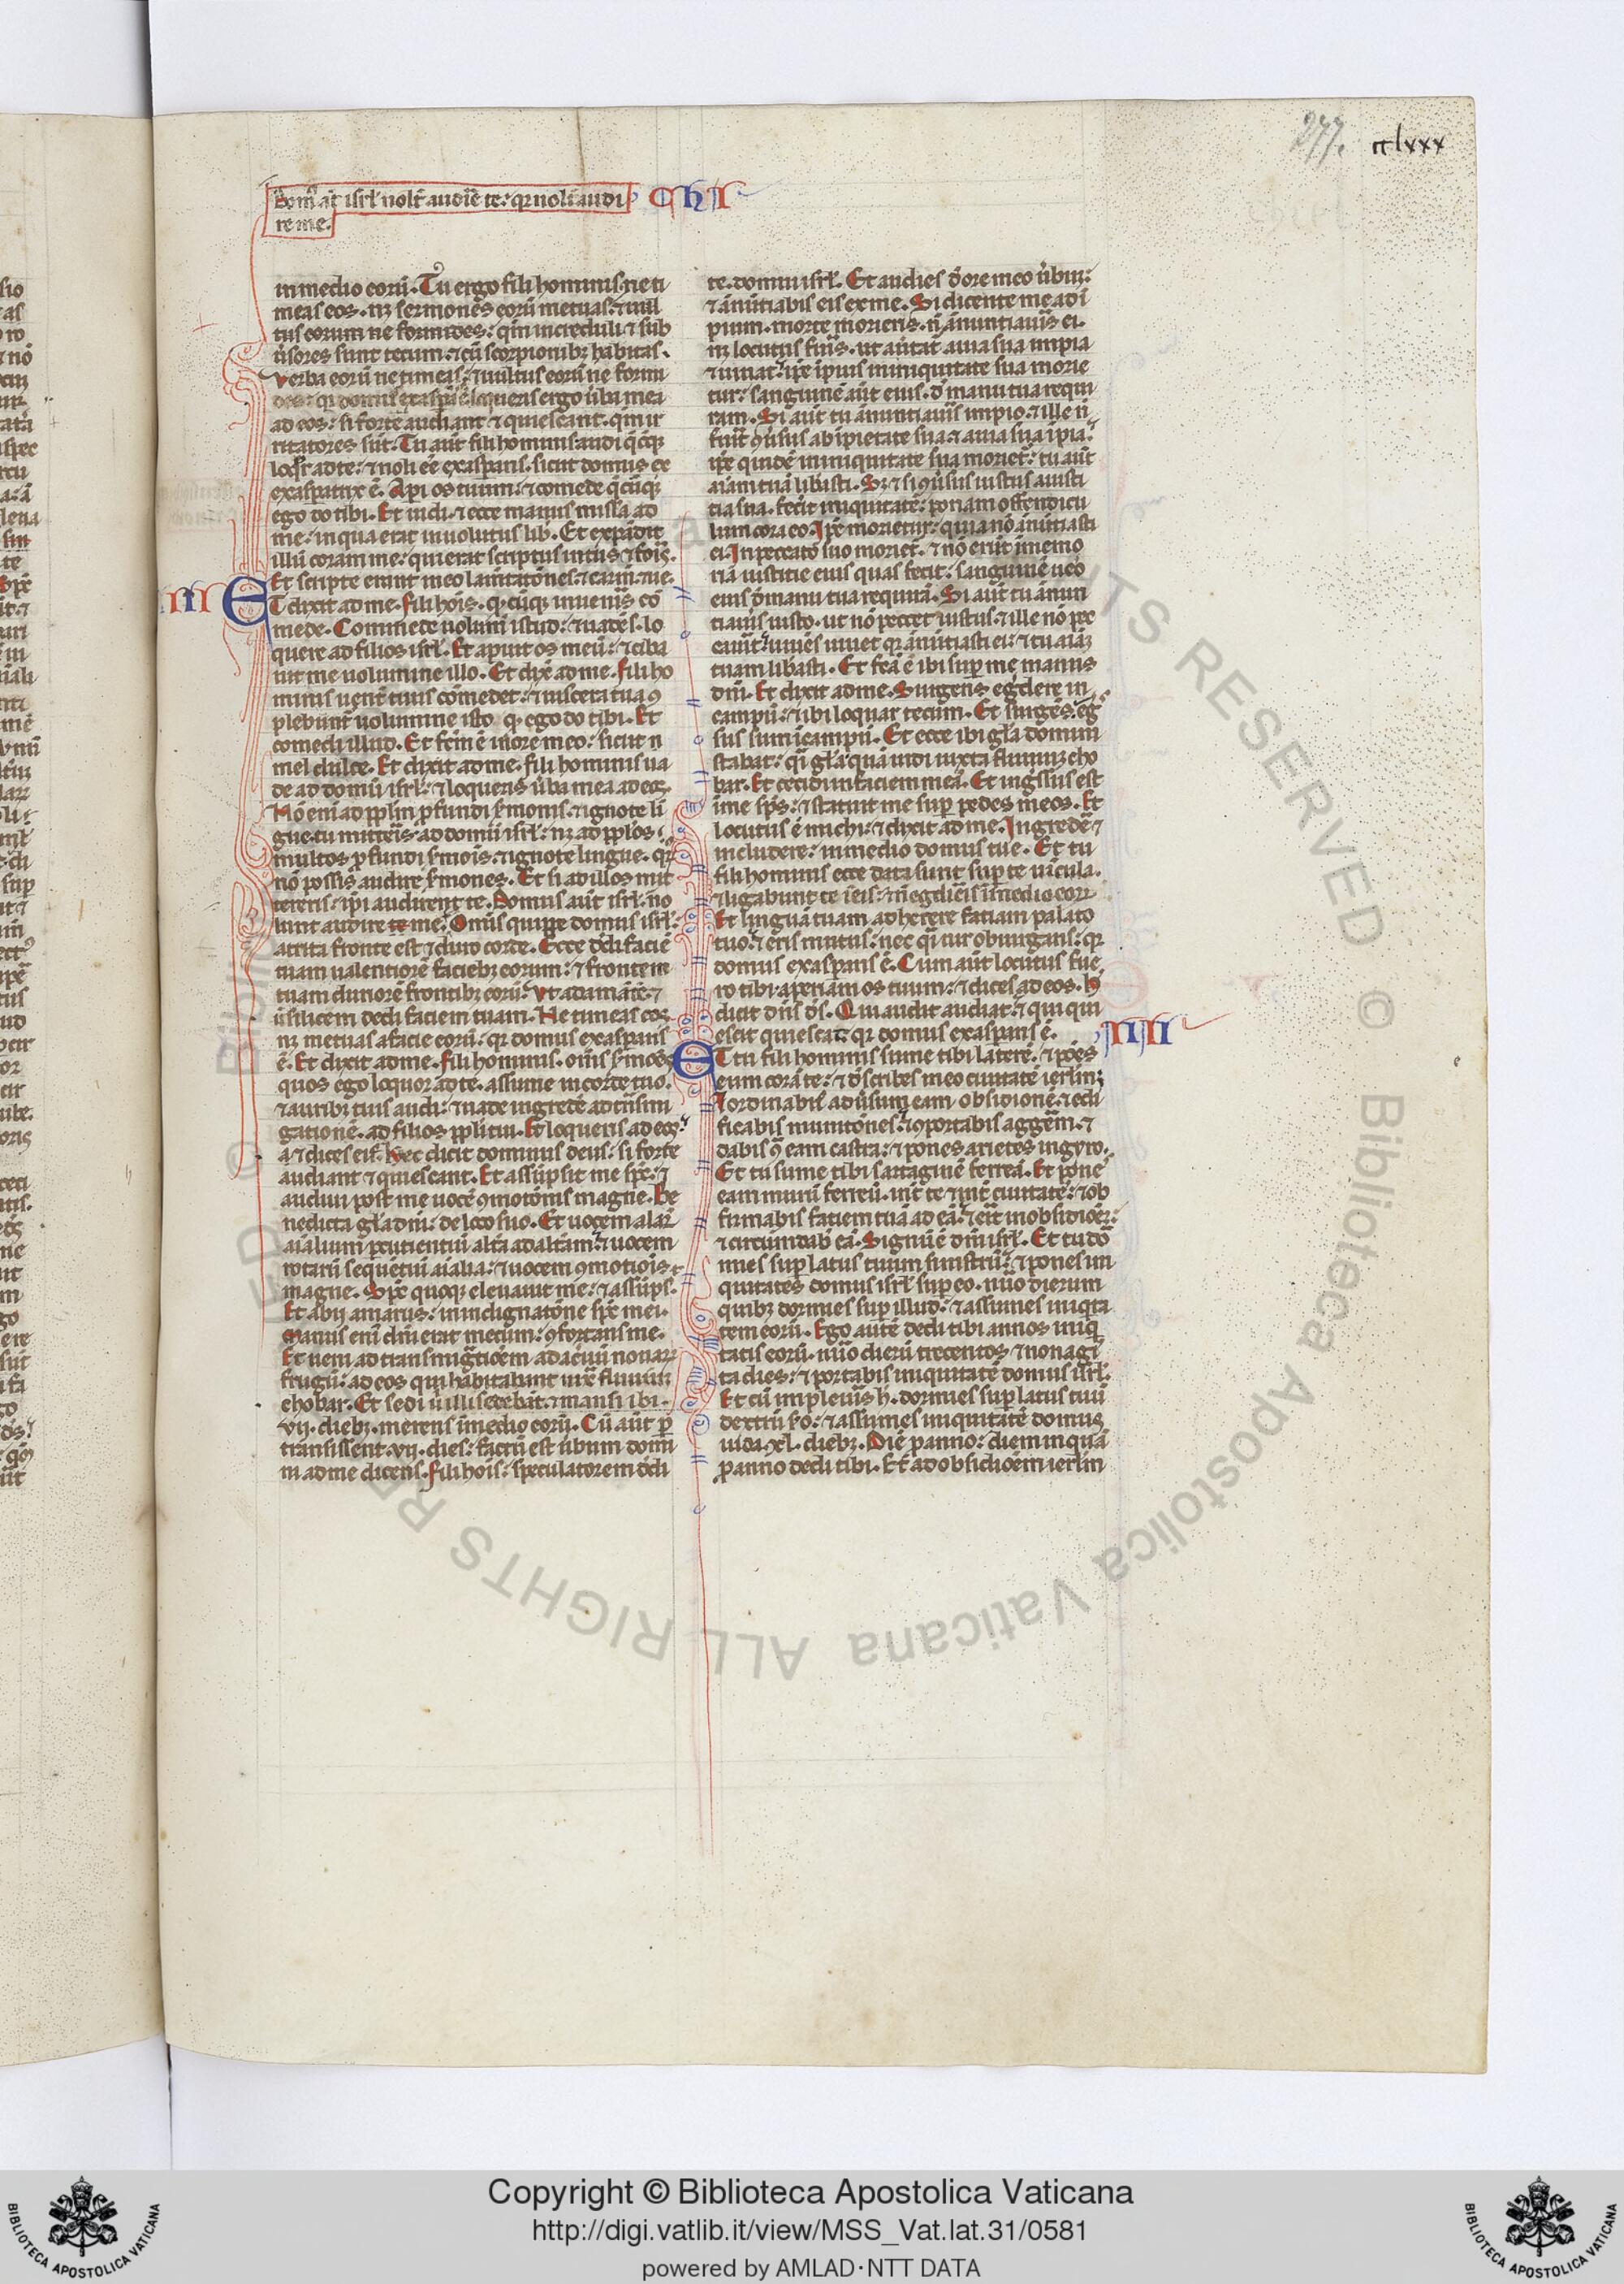 277.
cclxxx
Dom⁹ aūt isrl̄ nolt̄ audiē te: qr̄ nolūt audi
re me.
ChI
in medio eorū. Tu ergo fili hominis ne ti
meas eos. nz sermones eorū metuas: ⁊ uul
tus eorum ne formides: qm̄ increduli ⁊ sub
ūsores sunt tecum: ⁊ cū scorpionibz habitas.
Verba eorū ne timeas: ⁊ uultus eorū ne formi
ad eos: si forte audiant ⁊ quiescant. qm̄ ir
ritatores sūt. Tu aūt fili hominis audi q̄cūqz
loqr̄ ad te: ⁊ noli eē exasperans. sicut domus
exaspatrix ē. Aperi os tuum: ⁊ comede q̄cūqz
ego do tibi. Et uidi. ⁊ ecce manus missa ad
me: in qua erat inuolutus lib̄. Et expādit
illū coram me: qui erat scriptus intus ⁊ foris.
Et scripte erant in eo lamtatōnes: ⁊ carm̄: ⁊ ue.
III
ET dixit ad me. fili hōis. qcūqz inueneris co
mede. Commede uolum̄ istud: ⁊ uadēs. lo
quere ad filios isrl̄. Et aperui os meū: ⁊ ciba
uit me uolumine illo. Et dix̄ ad me. fili ho
minis uent̄ tuus cōmedet: ⁊ uiscera tua 9
plebunt̄ uolumine isto q̄ ego do tibi. Et
comedi illud. Et fcm̄ ē in ore meo: sicut
mel dulce. Et dixit ad me. fili hominis ua
de ad domū isrl̄: ⁊ loqueris ūba mea ad eos.
Nō eni ad pplm̄ pfundi smonis. ⁊ ignote li
gue. tu mitteris. ad domū isrl̄: nz ad pplos.
multos pfundi smōis. ⁊ ignote lingue. qr̄
nō possis audire smones. Et si ad illos mit
tereris: ipi audirent te. Domus aūt isrl̄: no
lunt audire te me. Omīs quippe domus isrl̄:
attrita fronte est ⁊ duro corde. Ecce dedi faciē
tuam ualentiorē faciebz eorum: ⁊ frontem
tuam duriorē frontibz eorū. Vt adamātē. ⁊
ū silicem dedi faciem tuam. Ne timeas eos.
nz metuas a facie eorū: qr̄ domus exasperans
ē. Et dixit ad me. fili hominis. omīs smoēs
quos ego loquor ad te. assume in corde tuo.
⁊ auribz tuis audi: ⁊ uade ingredē ad trāsmi
gationē. ad filios ppli tui. Et loqueris ad eos:
⁊ dices eis. Hec dicit dominus deus: si forte
audiant ⁊ quiescant. Et assūpsit me sps: ⁊
audiui post me uocē 9motōnis magne. Be
nedicta gl̄a dn̄i: de loco suo. Et uocem alarū
aīalium pcutientiū altā ad altam: ⁊ uocem
rotarū sequētiū aialia: ⁊ uocem 9motiōis
magne. Sps̄ quoqz eleuauit me: ⁊ assūps.
Et abii amarus: in indignatōne sps̄ mei.
Manus eni dn̄i erat mecum: 9fortans me.
Et ueni ad transmigrtiōem ad aceruū nouarz
frugū: ad eos qui habitabant iux̄ fluuiū
chobar. Et sedi ubi illi sedebāt: ⁊ mansi ibi.
vii. diebz. merens i medio eorū. Cū aūt p
transissent. vii. dies: factū est ūbum domi
ni ad me dicens. fili hōis: speculatorem dedi
te. domui isrl̄. Et audies d̄ ore meo ūbum:
⁊ ānūtiabis eis ex me. Si dicente me ad i
pium. morte morieris. n̄ ānuntiauis ei.
nz locutus fuis. ut auertat̄ a uia sua impia
⁊ uiuat: ipe ipius in iniquitate sua morie
tur: sanguinē aūt eius. d̄ manu tua requi
ram. Si aūt tu ānuntiauis impio. ⁊ ille n̄
fuit 9ūsus ab ipietate sua. ⁊ a uia sua ipia:
ipe qndē in iniquitate sua moriet̄: tu aūt
aīam tuā libasti. Sz ⁊ si 9ūsus iustus a iusti
tia sua. fecit iniquitatē: ponam offendicu
lum corā eo. Ipe morietur: quia nō ānūtiasti
ei. In peccato suo moriet̄. ⁊ nō erūt i memo
ria iusticie eius quas fecit: sanguinē ūo
eius d̄ manu tua requirā. Si aūt tu ānun
tiauis iusto. ut nō peccet iustus. ⁊ ille nō pec
cauit: uiuēs uiuet qr̄ ānūtiasti ei: ⁊ tu aīaz
tuam libasti. Et fcā ē ibi sup me manus
dn̄i. Et dixit ad me. Surgens egdere in
campū: ⁊ ibi loquar tecum. Et surgēs eg
sus sum i campū. Et ecce ibi gl̄a domini
stabat: qi gl̄a quā uidi iuxta fluuiuz cho
bar. Et cecidi in faciem meā. Et ingssus est
i me sps̄: ⁊ statuit me sup pedes meos. Et
locutus ē michi: ⁊ dixit ad me. Ingredē ⁊
includere: in medio domus tue. Et tu
fili hominis ecce data sunt sup te uicula.
⁊ ligabunt te i eis: ⁊ n̄ egdieris i medio eorz
Et linguā tuam adherere faciam palato
tuo: ⁊ eris mutus: nec qi uir obiurgans: qr̄
domus exasperans ē. Cum aūt locutus fue
ro tibi. aperiam os tuum: ⁊ dices ad eos. H̄
dicit dn̄s ds̄. Qui audit audiat: ⁊ qui qui
escit quiescat: qr̄ domus exasperans ē.
IIII
ET tu fili hominis sume tibi laterē. ⁊ pōes
eum corā te: ⁊ d̄scribes in eo ciuitatē ierlm:
⁊ ordinabis adūsum eam obsidionē. ⁊ edi
ficabis munitōnes: ⁊ 9portabis aggēm. ⁊
dabis 9 eam castra: ⁊ pones arietes in gyro.
Et tu sume tibi sartaginē ferreā. Et pone
eam murū ferreū. int̄ te ⁊ int̄ ciuitatē: ⁊ ob
firmabis faciem tuā ad eā. ⁊ erit in obsidiōez:
⁊ circumdab̄ eā. Signū ē dom isrl̄. Et tu dor
mies sup latus tuum sinistrū: ⁊ pones in
quitates domus isrl̄ sup eo. nūo dierum
quibz dormies sup illud: ⁊ assumes iniqta
tem eorū. Ego autē dedi tibi annos iniq
tatis eorū. nūo dierū trecentos. ⁊ nonagi
ta dies: ⁊ portabis iniquitatē domus isrl̄.
Et cū impleuis h. dormies sup latus tuū
dextrū sc̄do: ⁊ assumes iniquitatē domus
iuda. xl. diebz. Diē p anno: diem inquā
p anno dedi tibi. Et ad obsidiōem ierlm
Copyright © Biblioteca Apostolica Vaticana
http://digi.vatlib.it/view/MSS_Vat.lat.31/0581
powered by AMLAD·NTT DATA
BIBLIOTECA APOSTOLICA VATICANA
BIBLIOTECA APOSTOLICA VATICANA